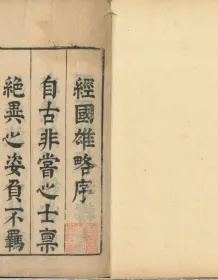 經國雄略序
自古非嘗之士禀
絕異之姿負不羈